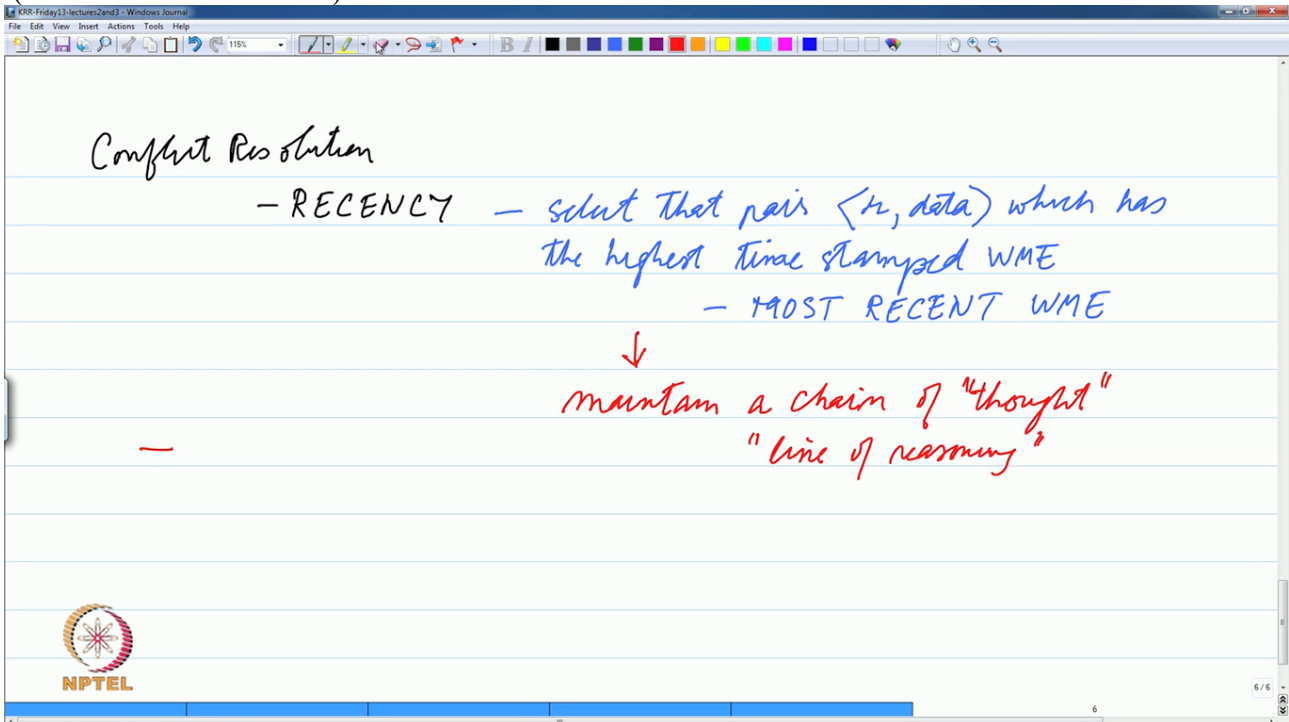 KRR-Friday13-lectures2and3 - Windows Journal
File Edit View Insert Actions Tools Help
115%
Conflict Resolution
- RECENCY - select that pair <r, data> which has
the highest time stamped WME
- MOST RECENT WME
↓
maintain a chain of "thought"
"line of reasoning"
-
NPTEL
6/6
6